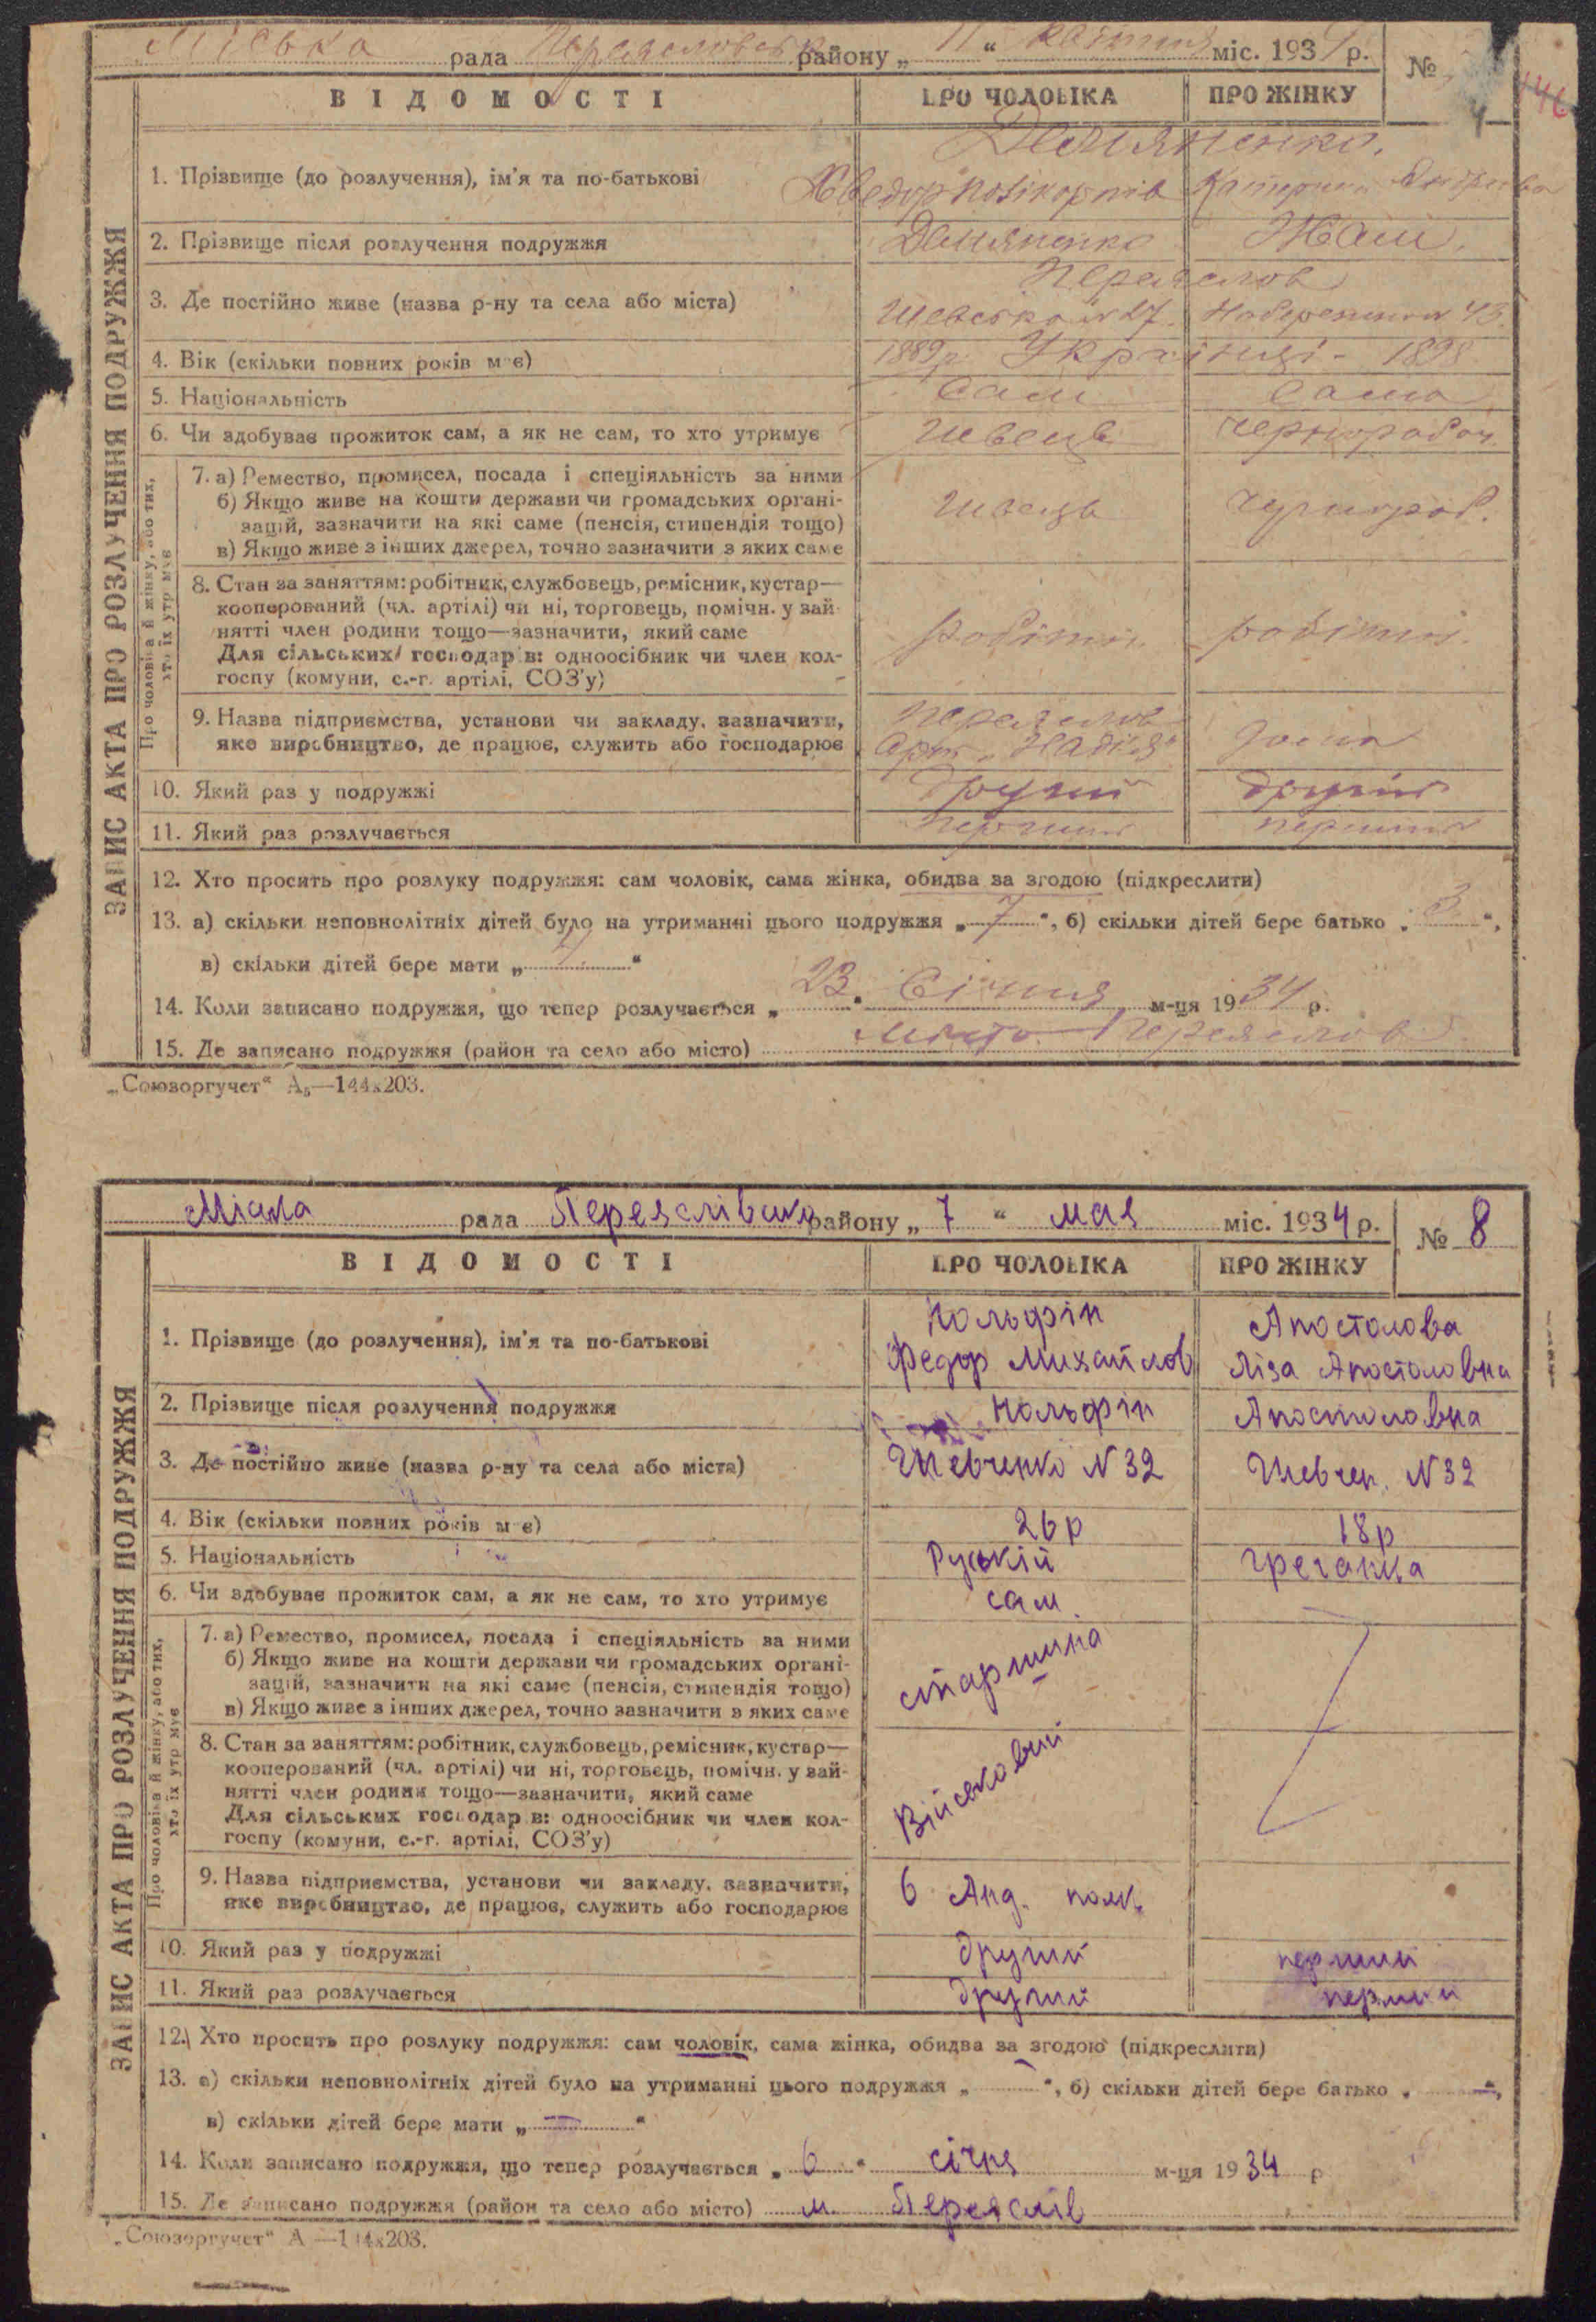 Міська рада Переяславськ району „ 11 “ квітня міс. 1934 р. №
ВІДОМОСТІ ПРО ЧОЛОВІКА ПРО ЖІНКУ
ЗАПИС АКТА ПРО РОЗЛУЧЕННЯ ПОДРУЖЖЯ
Демяненко
1. Прізвище (до розлучення), ім'я та по-батькові Хведор Полікарпів Катерина
2. Прізвище після розлучення подружжя Демяненко
Переяслов
3. Де постійно живе (назва р-ну та села або міста) 27 43
4. Вік (скільки повних років має) 1889р Українці 1898
5. Національність Сам Сама
6. Чи здобуває прожиток сам, а як не сам, то хто утримує Швець Чернороб.
Про чоловіка й жінку, або тих, хто їх утримує
7. а) Ремество, промисел, посада і спеціяльність за ними
б) Якщо живе на кошти держави чи громадських органі-
зацій, зазначити на які саме (пенсія, стипендія тощо) Швець Чернороб.
в) Якщо живе з інших джерел, точно зазначити з яких саме
8. Стан за заняттям: робітник, службовець, ремісник, кустар—
кооперований (чл. артілі) чи ні, торговець, помічн. у зай-
нятті член родини тощо—зазначити, який саме робітн. робітн.
Для сільських господарів: одноосібник чи член кол-
госпу (комуни, с.-г. артілі, СОЗ'у)
9. Назва підприємства, установи чи закладу, зазначити, Переяслов
яке виробництво, де працює, служить або господарює Арт. „Надія“
10. Який раз у подружжі другий другий
11. Який раз розлучається перший перший
12. Хто просить про розлуку подружжя: сам чоловік, сама жінка, обидва за згодою (підкреслити)
13. а) скільки неповнолітніх дітей було на утриманні цього подружжя „ 7 “, б) скільки дітей бере батько „ 3 “,
в) скільки дітей бере мати „ 4 “
14. Коли записано подружжя, що тепер розлучається „ 23 “ Січня м-ця 1934 р.
15. Де записано подружжя (район та село або місто) місто Переяслов
„Союзоргучет“ А₅—144х203.
Міська рада Переяслівськ району „ 7 “ мая міс. 1934 р. № 8
ВІДОМОСТІ ПРО ЧОЛОВІКА ПРО ЖІНКУ
ЗАПИС АКТА ПРО РОЗЛУЧЕННЯ ПОДРУЖЖЯ
Нольфін Апостолова
1. Прізвище (до розлучення), ім'я та по-батькові Федор Михайлов Ліза Апостоловна
2. Прізвище після розлучення подружжя Нольфін Апостоловна
3. Де постійно живе (назва р-ну та села або міста) Шевченко N 32 Шевчен. N 32
4. Вік (скільки повних років має) 26р 18р
5. Національність Руській гречанка
6. Чи здобуває прожиток сам, а як не сам, то хто утримує сам
Про чоловіка й жінку, або тих, хто їх утримує
7. а) Ремество, промисел, посада і спеціяльність за ними
б) Якщо живе на кошти держави чи громадських органі-
зацій, зазначити на які саме (пенсія, стипендія тощо) старшина
в) Якщо живе з інших джерел, точно зазначити з яких саме
8. Стан за заняттям: робітник, службовець, ремісник, кустар—
кооперований (чл. артілі) чи ні, торговець, помічн. у зай-
нятті член родини тощо—зазначити, який саме Військовий
Для сільських господарів: одноосібник чи член кол-
госпу (комуни, с.-г. артілі, СОЗ'у)
9. Назва підприємства, установи чи закладу, зазначити,
яке виробництво, де працює, служить або господарює 6 полк
10. Який раз у подружжі другий перший
11. Який раз розлучається другий перший
12. Хто просить про розлуку подружжя: сам чоловік, сама жінка, обидва за згодою (підкреслити)
13. а) скільки неповнолітніх дітей було на утриманні цього подружжя „ — “, б) скільки дітей бере батько „ — “,
в) скільки дітей бере мати „ — “
14. Коли записано подружжя, що тепер розлучається „ 6 “ січня м-ця 1934 р
15. Де записано подружжя (район та село або місто) м. Переяслів
„Союзоргучет“ А —144х203.